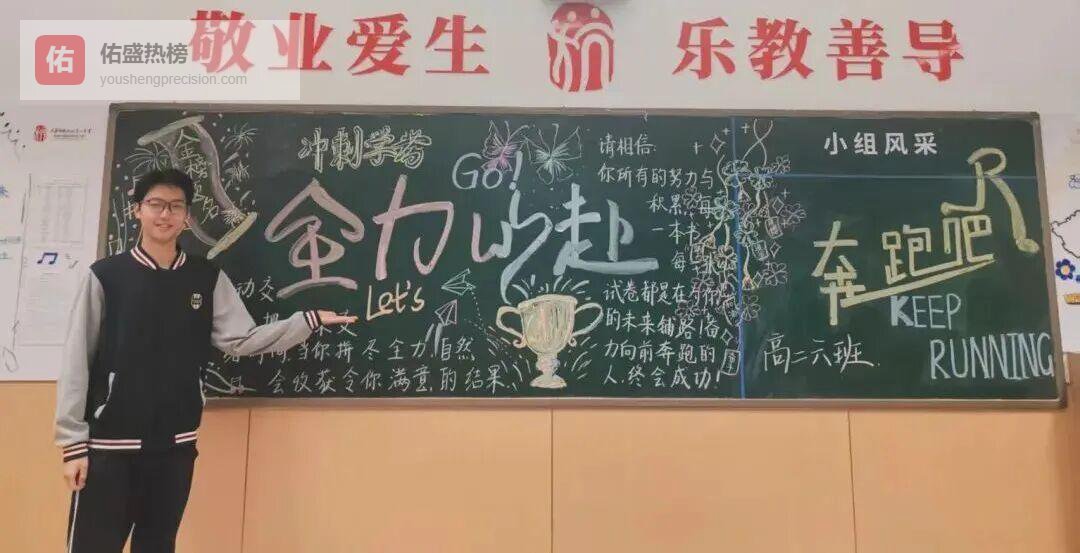 敬业爱生 乐教善导
佑
佑盛热榜
youshengprecision.com
金榜
名
冲刺学考
Go!
全力以赴
Let's
动交
给时间 当你拼尽全力 自然
会收获令你满意的结果
请相信:
你所有的努力与
秋果 每
一本书
每
试卷都是在为你
的未来铺路!奋
力向前奔跑的
人,终会成功!
小组风采
奔跑吧
R
KEEP
RUNNING
高二六班